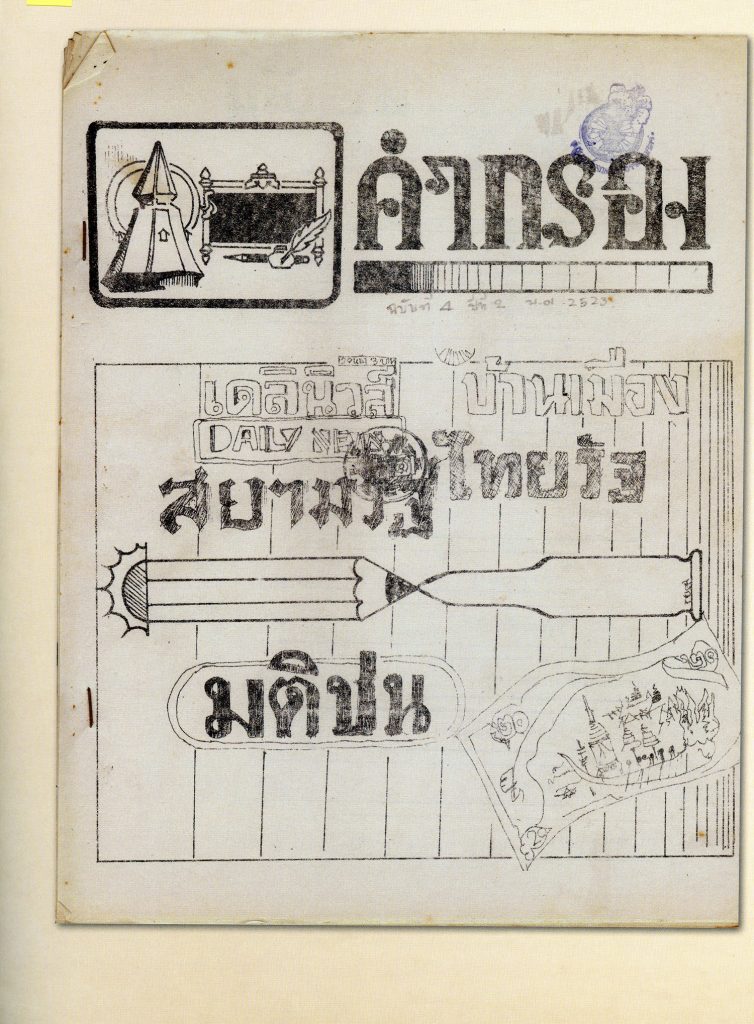 คำกรอง
ฉบับที่ 4 ปีที่ 2 พ.ศ. 2523
เดลินิวส์
บ้านเมือง
DAILY NEWS
สยามรัฐ
ไทยรัฐ
มติชน